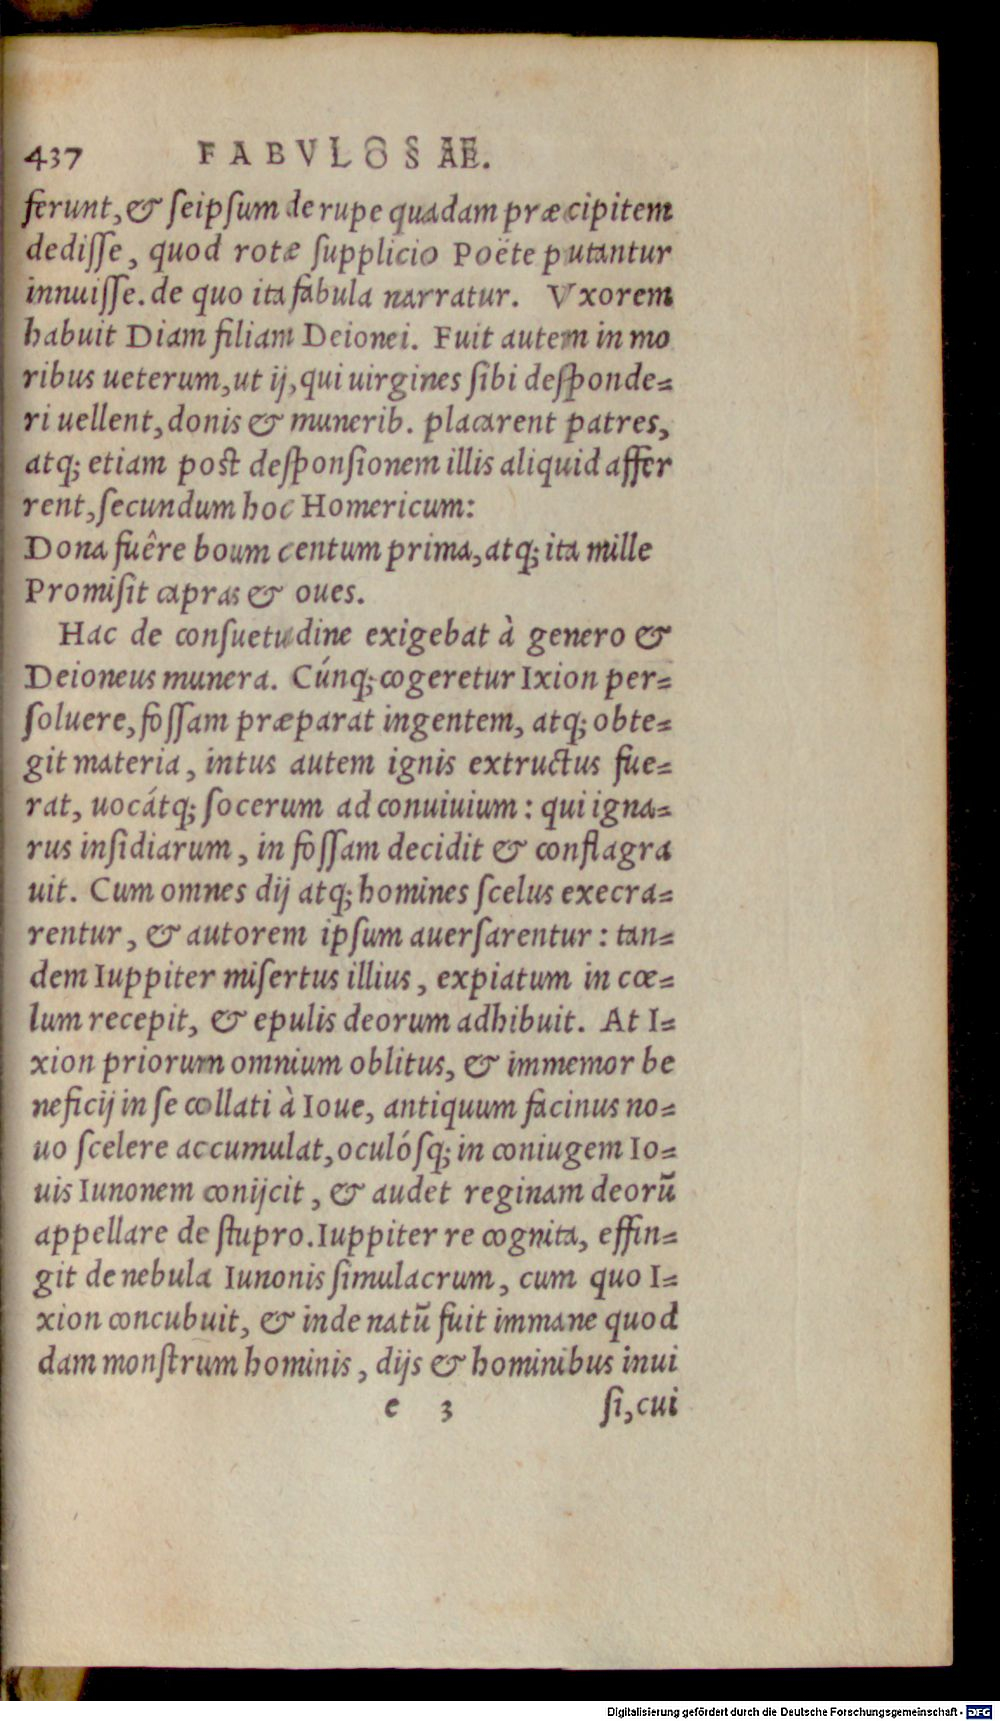 437 FABVLOSAE.
ferunt, & ſeipſum de rupe quadam præcipitem
dediſſe, quod rotæ ſupplicio Poëte putantur
innuiſſe. de quo ita fabula narratur. Vxorem
habuit Diam filiam Deionei. Fuit autem in mo
ribus ueterum, ut ij, qui uirgines ſibi deſponde=
ri uellent, donis & munerib. placarent patres,
atq; etiam poſt deſponſionem illis aliquid affer
rent, ſecundum hoc Homericum:
Dona fuêre boum centum prima, atq; ita mille
Promiſit capras & oues.
Hac de conſuetudine exigebat à genero &
Deioneus munera. Cúnq; cogeretur Ixion per=
ſoluere, foſſam præparat ingentem, atq; obte=
git materia, intus autem ignis extructus fue=
rat, uocátq; ſocerum ad conuiuium: qui igna=
rus inſidiarum, in foſſam decidit & conflagra
uit. Cum omnes dij atq; homines ſcelus execra=
rentur, & autorem ipſum auerſarentur: tan=
dem Iuppiter miſertus illius, expiatum in cœ=
lum recepit, & epulis deorum adhibuit. At I=
xion priorum omnium oblitus, & immemor be
neficij in ſe collati à Ioue, antiquum facinus no=
uo ſcelere accumulat, oculóſq; in coniugem Io=
uis Iunonem conijcit, & audet reginam deorũ
appellare de ſtupro. Iuppiter re cognita, effin=
git de nebula Iunonis ſimulacrum, cum quo I=
xion concubuit, & inde natũ fuit immane quod
dam monſtrum hominis, dijs & hominibus inui
e 3 ſi, cui
Digitalisierung gefördert durch die Deutsche Forschungsgemeinschaft - DFG